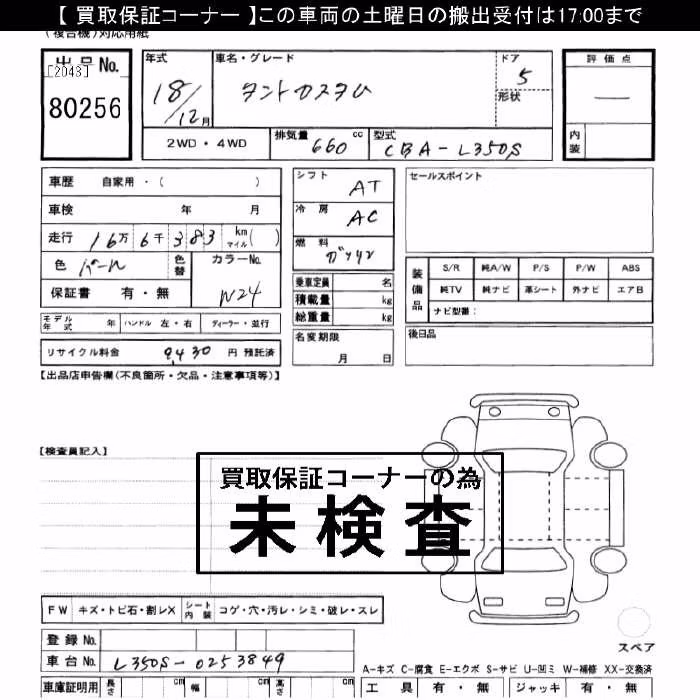 【 買取保証コーナー 】この車両の土曜日の搬出受付は17:00まで
(複合機)対応用紙
出品No.
[2043]
80256
年式
18/12月
車名・グレード
タントカスタム
ドア
5
形状
評価点
—
内装
2WD・4WD
排気量 660 cc
型式 CBA-L350S
車歴 自家用・( )
車検 年 月
走行 16万6千383 km マイル( )
色 パール
色替
カラーNo.
W24
保証書 有・無
シフト AT
冷房 AC
燃料 ガソリン
乗車定員 名
積載量 kg
総重量 kg
名変期限
月 日
セールスポイント
装備品
S/R 純A/W P/S P/W ABS
純TV 純ナビ 革シート 外ナビ エアB
ナビ型番:
後日品
モデル年式 年 ハンドル 左・右 ディーラー・並行
リサイクル料金 9,430 円 預託済
【出品店申告欄(不良箇所・欠品・注意事項等)】
【検査員記入】
買取保証コーナーの為
未検査
FW キズ・トビ石・割レX シート内装 コゲ・穴・汚レ・シミ・破レ・スレ
スペア
登録No.
車台No. L350S-0253849
A-キズ C-腐食 E-エクボ S-サビ U-凹ミ W-補修 XX-交換済
車庫証明用 長さ cm 幅 cm 高さ cm
工具 有・無 ジャッキ 有・無